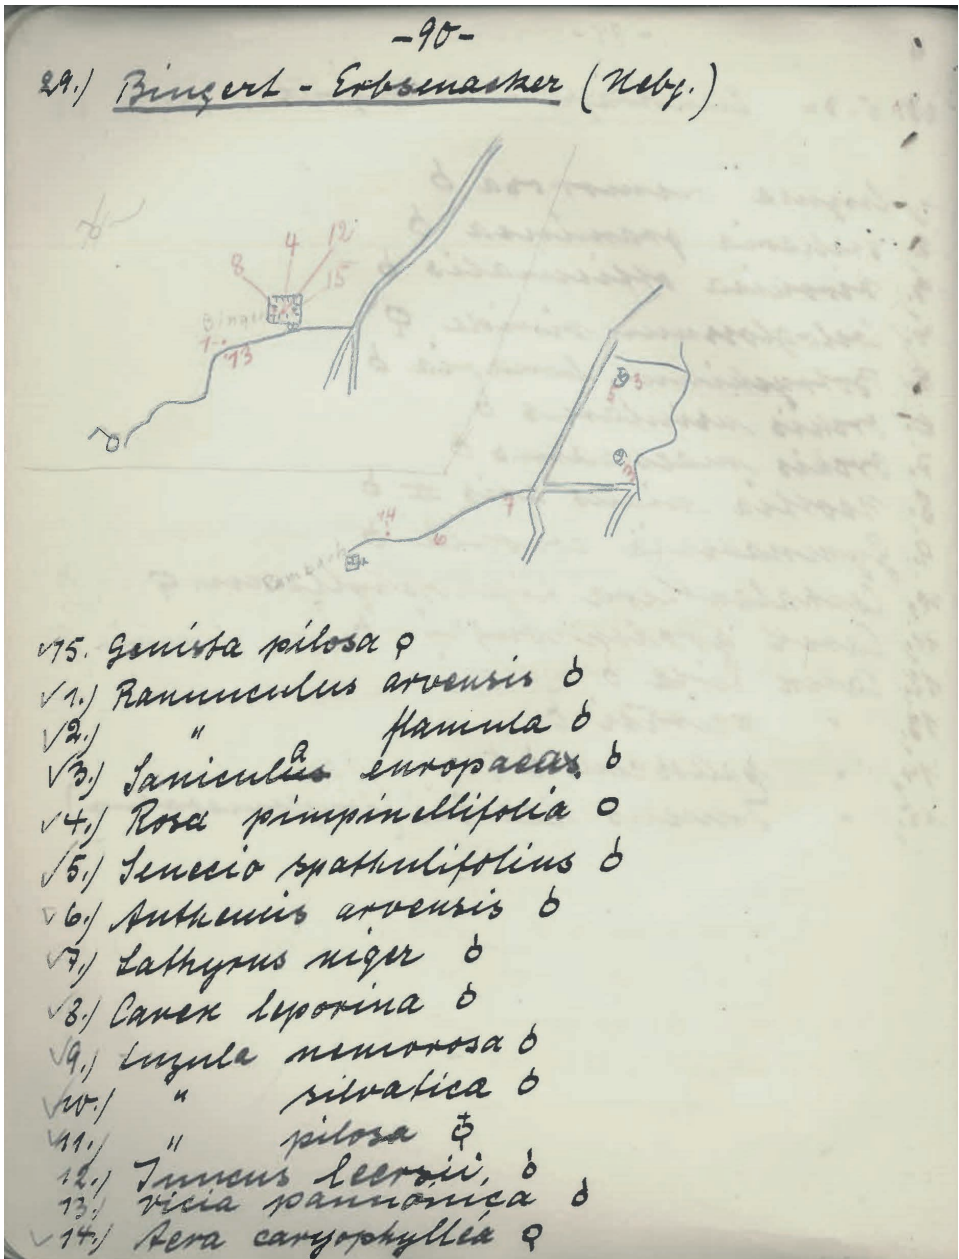 -90-
29.) Bingert - Erbsenacker (Nebg.)
4
12
8
15
1
13
3
5
3
14
7
6
√15. Genista pilosa ♀
√1.) Ranunculus arvensis ♁
√2.) " flamula ♁
√3.) Sanicula europaea ♁
√4.) Rosa pimpinellifolia O
√5.) Senecio spathulifolius ♁
√6.) Anthemis arvensis ♁
√7.) Lathyrus niger ♁
√8.) Carex leporina ♁
√9.) Luzula nemorosa ♁
√10.) " silvatica ♁
√11.) " pilosa ♁
12.) Juncus leersii. ♁
13.) Vicia pannonica ♁
√14.) Aera caryophyllea ♀